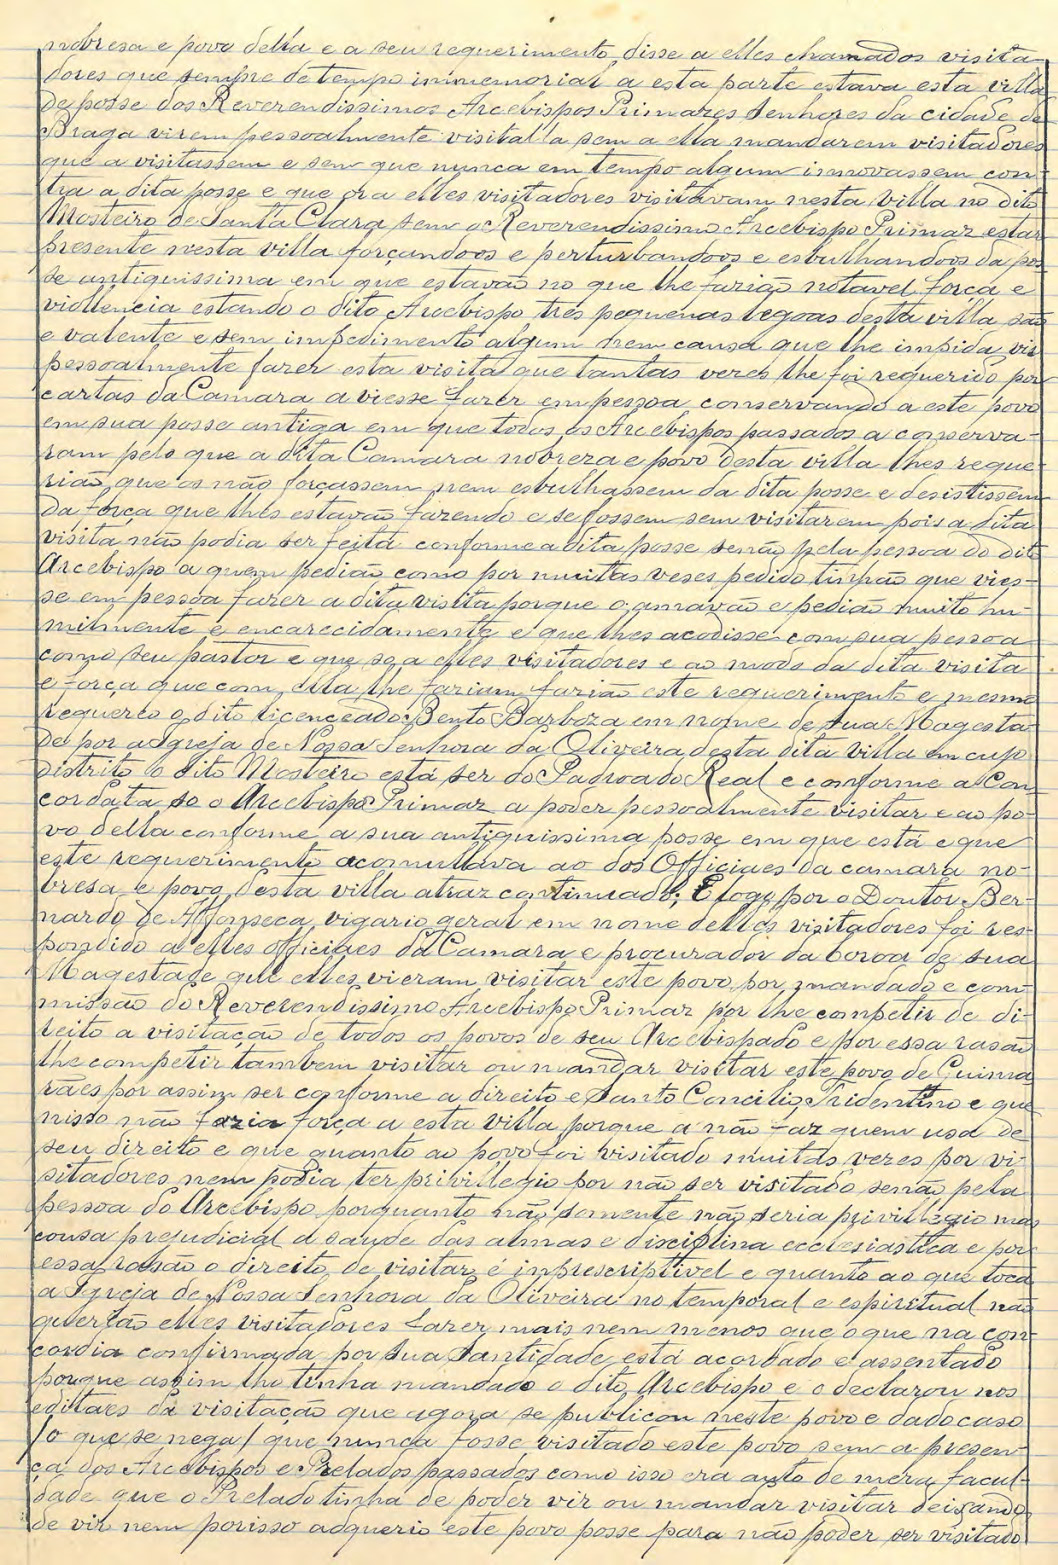 nobresa e povo della e a seu requerimento, disse a elles chamados visita-
dores que sempre de tempo immemorial a esta parte estava esta villa
de posse dos Reverendissimos Arcebispos Primazes Senhores da cidade de
Braga virem pessoalmente visitalla sem a ella mandarem visitadores
que a visitassem e sem que nunca em tempo algum innovassem con-
tra a dita posse e que ora elles visitadores visitavam nesta villa no dito
Mosteiro de Santa Clara sem o Reverendissimo Arcebispo Primaz estar
presente nesta villa forçandoos e perturbandoos e esbulhandoos da pos-
se antiquissima em que estavão no que lhe farião notavel força e
violencia estando o dito Arcebispo tres pequenas legoas desta villa são
e valente e sem impedimento algum nem causa que lhe impida vir
pessoalmente fazer esta visita que tantas vezes lhe foi requerido por
cartas da Camara a viesse fazer em pessoa conservando a este povo
em sua posse antiga em que todos os Arcebispos passados a conserva-
ram pelo que a dita Camara nobreza e povo desta villa lhes reque-
rião que os não forçassem nem esbulhassem da dita posse e desistissem
da força que lhes estavão fazendo e se fossem sem visitarem pois a dita
visita não podia ser feita conforme a dita posse senão pela pessoa do dito
Arcebispo a quem pedião como por muitas veses pedido tinhão que vies-
se em pessoa fazer a dita visita porque o amavão e pedião muito hu-
milmente e encarecidamente e que lhes acodisse com sua pessoa
como seu pastor e que so a elles visitadores e ao modo da dita visita
e força que com ella lhe fariam farião este requerimento e mesmo
requereo o dito licenceado Bento Barboza em nome de sua Magesta-
de por a Igreja de Nossa Senhora da Oliveira desta dita villa em cujo
distrito o dito Mosteiro está ser do Padroado Real e conforme a Con-
cordata so o Arcebispo Primaz a poder pessoalmente visitar e ao po-
vo della conforme a sua antiquissima posse em que está e que
este requerimento acomullava ao dos Officiaes da camara no-
bresa e povo desta villa atraz continuado; E logo por o Doutor Ber-
nardo de Affonseca vigario geral em nome delles visitadores foi res-
pondido a elles officiaes da Camara e procurador da coroa de sua
Magestade que elles vieram visitar este povo por mandado e com-
missão do Reverendissimo Arcebispo Primaz por lhe competir de di-
reito a visitação de todos os povos de seu Arcebispado e por essa rasão
lhe competir tambem visitar ou mandar visitar este povo de Guima-
rães por assim ser conforme a direito e Santo Concilio Tridentino e que
nisso não fazia força a esta villa porque a não faz quem usa de
seu direito e que quanto ao povo foi visitado muitas vezes por vi-
sitadores nem podia ter privillegio por não ser visitado senão pela
pessoa do Arcebispo porquanto não somente não seria privillegio mas
cousa prejudicial á saude das almas e disciplina ecclesiastica e por
essa rasão o direito de visitar é inprescriptivel e quanto ao que toca
a Igreja de Nossa Senhora da Oliveira no temporal e espiritual não
querião elles visitadores fazer mais nem menos que o que na con-
cordia confirmada por sua Santidade está acordado e assentado
porque assim lho tinha mandado o dito Arcebispo e o declarou nos
editaes da visitação que agora se publicou neste povo e dado caso
/o que se nega/ que nunca fosse visitado este povo sem a presen-
ça dos Arcebispos e Prelados passados como isso era auto de mera facul-
dade que o Prelado tinha de poder vir ou mandar visitar deixando
de vir nem porisso adquerio este povo posse para não poder ser visitado